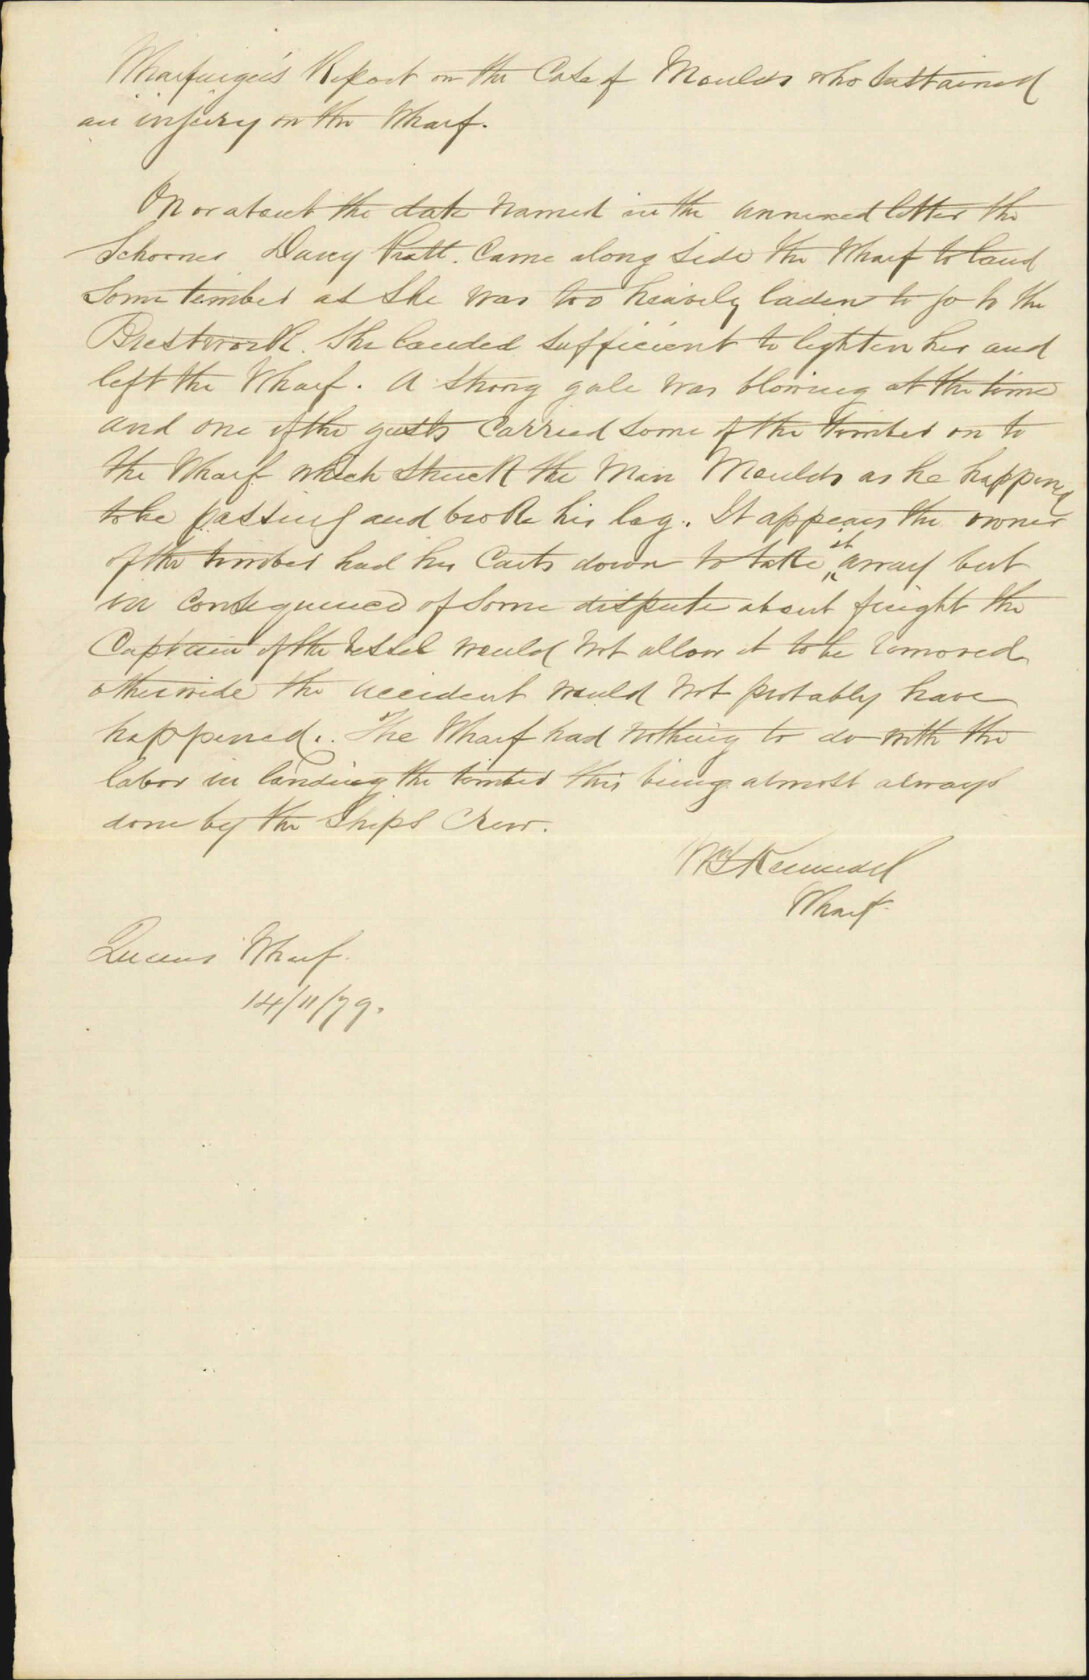 Wharfinger's Report on the Case of Moulds who sustained
an injury on the Wharf.
On or about the date named in the annexed letter the
Schooner Davey Pratt. Came along side the Wharf to land
some timber as she was too heavily laden to go to the
Brestwork. She landed sufficient to lighten her and
left the Wharf. A strong gale was blowing at the time
and one of the gusts carried some of the timber on to
the Wharf which struck the man Moulds as he happened
to be passing and broke his leg. It appears the owner
of the timber had his carts down to take it away but
in consequence of some dispute about freight the
Captain of the Vessel would not allow it to be removed
otherwise the accident would not probably have
happened. The Wharf had nothing to do with the
labor in landing the timber this being almost always
done by the Ships Crew.
Wharf.
Queens Wharf.
14/11/79.